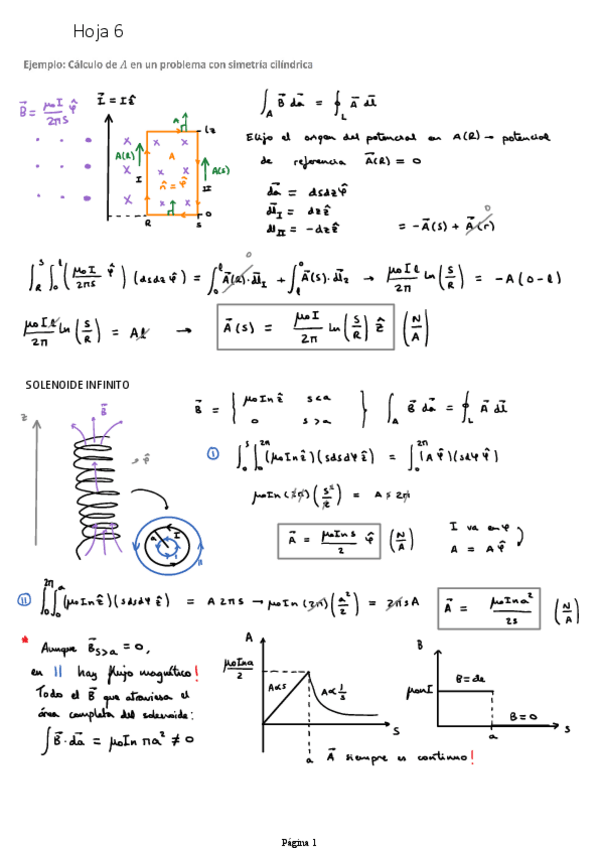 Hoja 6
Ejemplo: Cálculo de A en un problema con simetría cilíndrica
B⃗ = μoI/2πs φ̂
I⃗ = I ẑ
A(R) A(s)
n̂ = φ̂
∫_A B⃗ da⃗ = ∮_L A⃗ dl⃗
Elijo el origen del potencial en A(R) → potencial
de referencia A⃗(R) = 0
da⃗ = dsdzφ̂
dl⃗_I = dzẑ
dl_II = -dzẑ = -A⃗(s) + A⃗(r) 0
∫_R^s ∫_0^l (μoI/2πs φ̂) (dsdz φ̂) = ∫_0^l A⃗(R)·dl⃗_I + ∫_l^0 A⃗(s)·dl⃗_2 → μoIl/2π ln(s/R) = -A(0-l)
μoIl/2π ln(s/R) = Al → A⃗(s) = μoI/2π ln(s/R) ẑ (N/A)
SOLENOIDE INFINITO
B⃗ = { μoInẑ s<a
0 s>a } ∫_A B⃗ da⃗ = ∮_L A⃗ dl⃗
I ∫_0^s ∫_0^2π (μoInẑ)(sdsdφẑ) = ∫_0^2π (A φ̂)(sdφ φ̂)
μoIn(2π)(s²/2) = A s 2π
A⃗ = μoIns/2 φ̂ (N/A) I va en φ
A = A φ̂
II ∫_0^2π ∫_0^a (μoInẑ)(sdsdφẑ) = A2πs → μoIn(2π)(a²/2) = 2πsA A⃗ = μoIna²/2s (N/A)
* Aunque B⃗s>a = 0,
en II hay flujo magnético!
Todo el B⃗ que atraviesa el
área completa del solenoide:
∫B⃗·da⃗ = μoIn πa² ≠ 0
A μoIna/2 A∝s A∝1/s s a
B μonI B=cte B=0 a s
A⃗ siempre es continuo!
Página 1